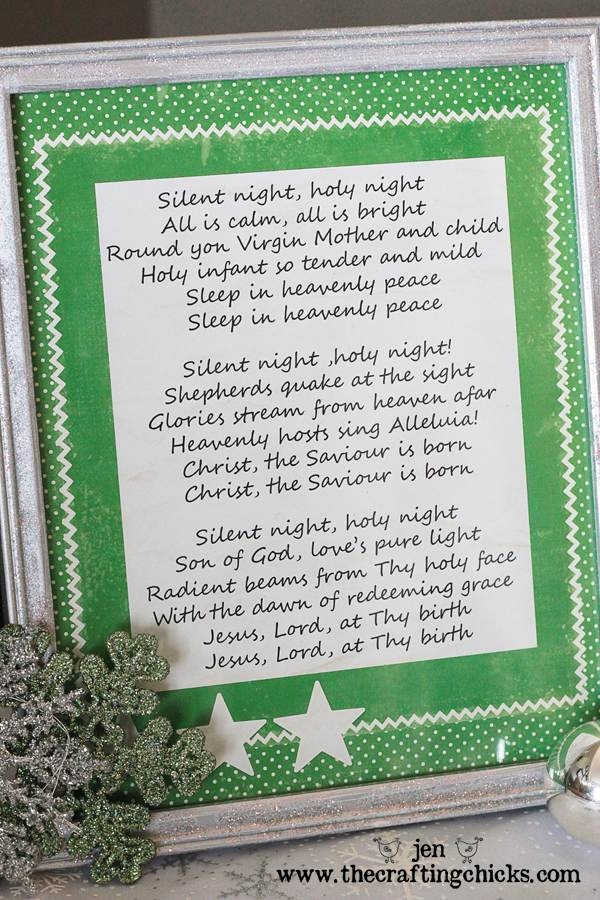 Silent night, holy night
All is calm, all is bright
Round yon Virgin Mother and child
Holy infant so tender and mild
Sleep in heavenly peace
Sleep in heavenly peace
Silent night ,holy night!
Shepherds quake at the sight
Glories stream from heaven afar
Heavenly hosts sing Alleluia!
Christ, the Saviour is born
Christ, the Saviour is born
Silent night, holy night
Son of God, love's pure light
Radient beams from Thy holy face
With the dawn of redeeming grace
Jesus, Lord, at Thy birth
Jesus, Lord, at Thy birth
jen
www.thecraftingchicks.com